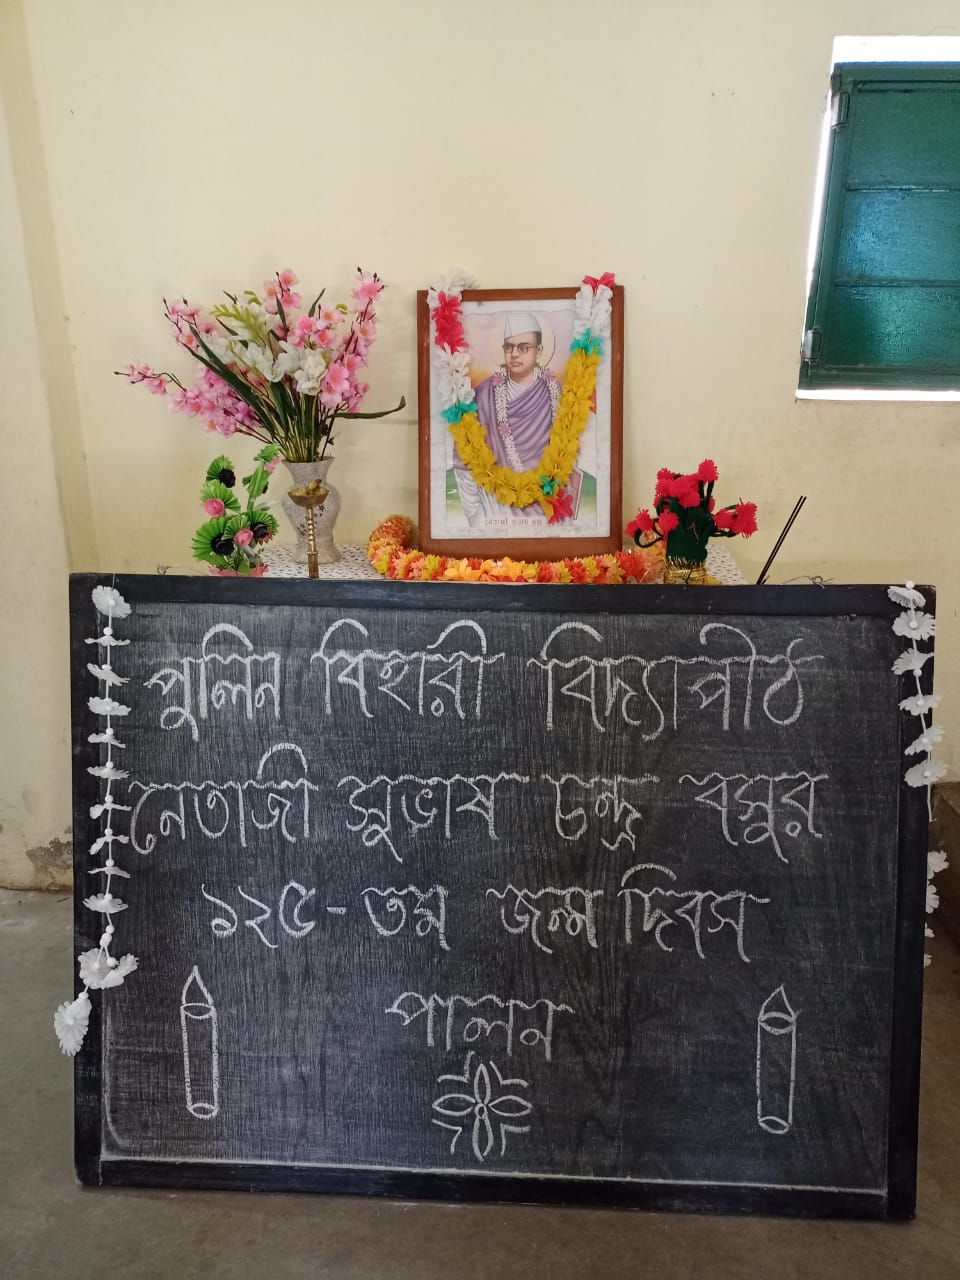 নেতাজী সুভাষ চন্দ্র
পুলিন বিহারী বিদ্যাপীঠ
নেতাজী সুভাষ চন্দ্র বসুর
১২৫-তম জন্ম দিবস
পালন